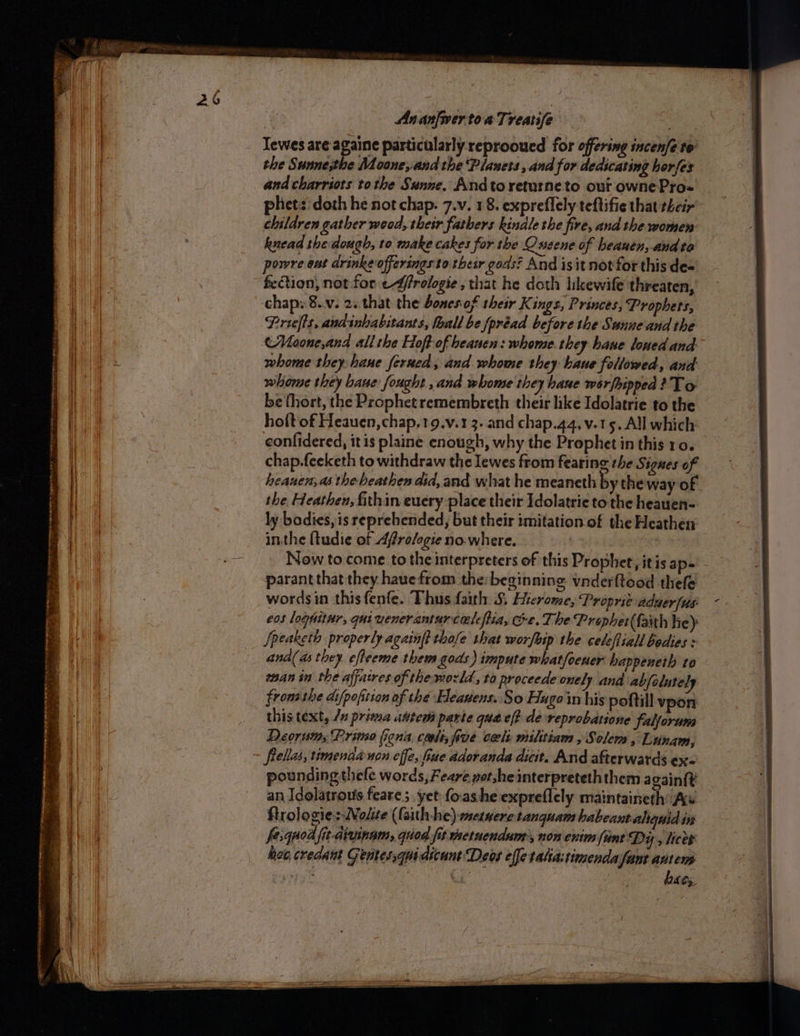 26
An answer to a Treatise
Iewes are againe particularly reprooued for offering incense to
the Sunne, the Moone, and the Planets, and for dedicating horses
and charriots to the Sunne. And to returne to out owne Pro-
phet: doth he not chap. 7.v. 18. expressely testifie that their
children gather wood, their fathers kindle the fire, and the women
knead the dough, to make cakes for the Queene of heauen, and to
powre out drinke offerings to their gods? And is it not for this de-
fection, not for Astrologie, that he doth likewife threaten,
chap. 8. v. 2. that the bones of their Kings, Princes, Prophets,
Priests, and inhabitants, shall be spread before the Sunne and the
Moone, and all the Host of heauen: whome they haue loued and
whome they haue serued, and whome they haue followed, and
whome they haue sought, and whome they haue worshipped? To
be short, the Prophet remembreth their like Idolatrie to the
host of Heauen, chap. 19.v.13. and chap.44. v.15. All which
considered, it is plaine enough, why the Prophet in this 10.
chap. seeketh to withdraw the Iewes from fearing the Signes of
heauen, as the heathen did, and what he meaneth by the way of
the Heathen, sith in euery place their Idolatrie to the heauen-
ly bodies, is reprehended, but their imitation of the Heathen
in the studie of Astrologie no where.
Now to come to the interpreters of this Prophet, it is ap-
parant that they haue from the beginning vnderstood these
words in this sense. Thus saith S. Hierome, Propriè aduersus
eos loquitur, qui venerantur cœlestia, &c. The Prophet (saith he)
speaketh properly against those that worship the celestiall bodies:
and (as they esteeme them gods) impute whatsoeuer happeneth to
man in the affaires of the world, to proceede onely and absolutely
from the disposition of the Heauens. So Hugo in his postill vpon
this text, In prima autem parte qua est de reprobatione falsorum
Deorum, Primo signa cœli, sive cœli militiam, Solem, Lunam,
stellas, timenda non esse, sine adoranda dicit. And afterwards ex-
pounding these words, Feare not, he interpreteth them against
an Idolatrous feare; yet so as he expressely maintaineth Au
strologie: Nolite (saith he) metuere tanquam habeant aliquid in
se, quod sit divinum, quod sit metuendum, non enim sunt Dij, licet
hoc credant Gentes, qui dicunt Deos esse talia: timenda sunt autem
hæc,